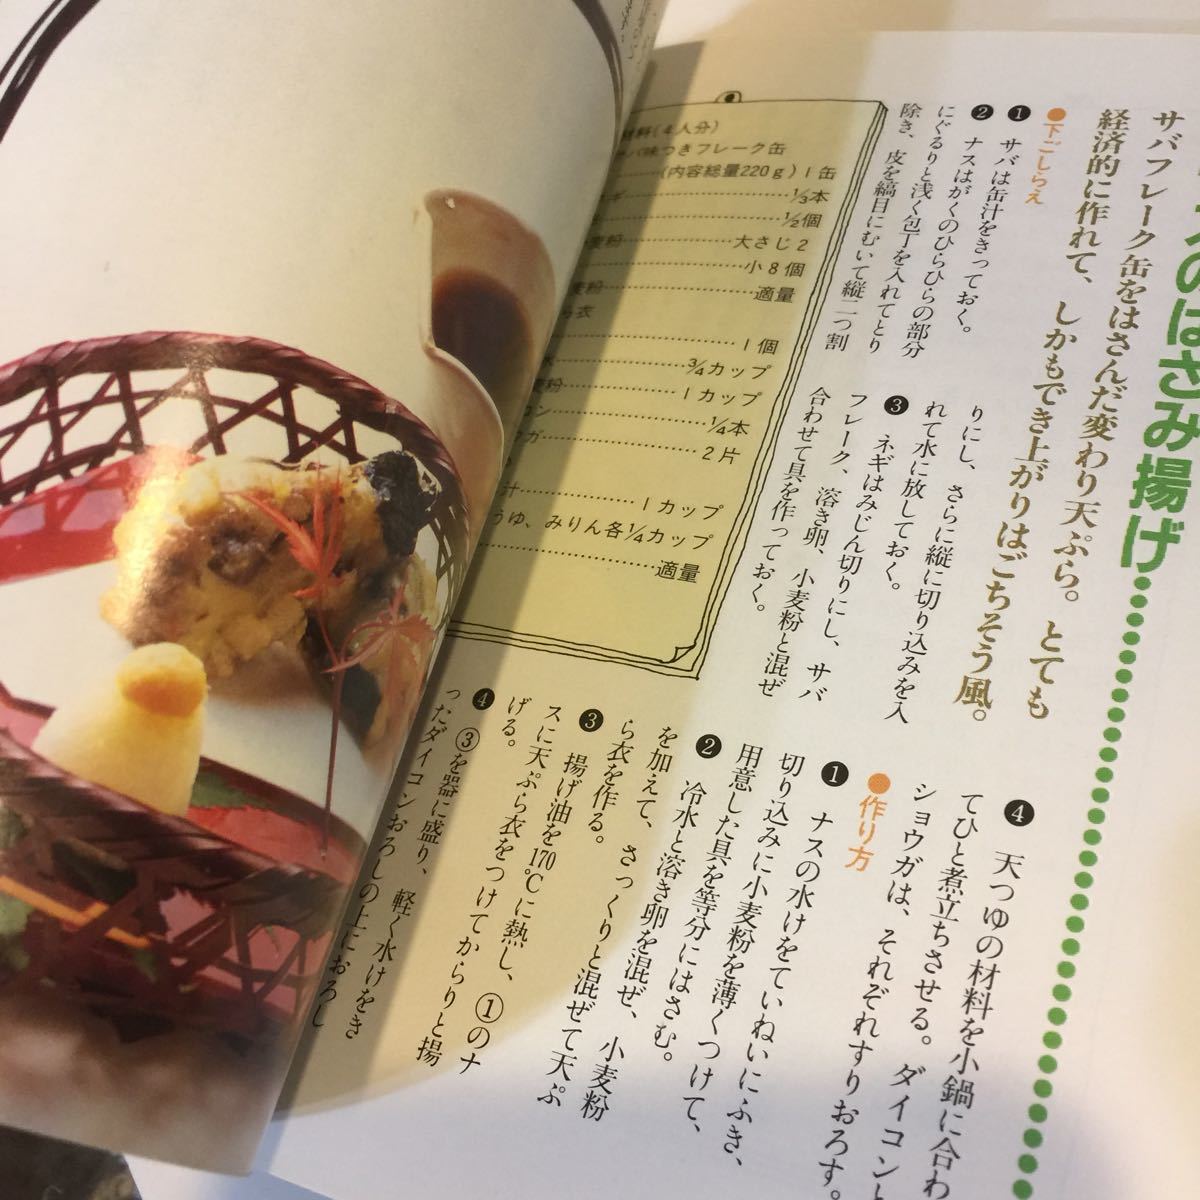 のはさみ揚げ
サバフレーク缶をはさんだ変わり天ぷら。とても
経済的に作れて、しかもでき上がりはごちそう風。
●下ごしらえ
❶ サバは缶汁をきっておく。
❷ ナスはがくのひらひらの部分
にぐるりと浅く包丁を入れてとり
除き、皮を縞目にむいて縦二つ割
りにし、さらに縦に切り込みを入
れて水に放しておく。
❸ ネギはみじん切りにし、サバ
フレーク、溶き卵、小麦粉と混ぜ
合わせて具を作っておく。
❹ 天つゆの材料を小鍋に合わ
てひと煮立ちさせる。ダイコンと
ショウガは、それぞれすりおろす。
●作り方
❶ ナスの水けをていねいにふき、
切り込みに小麦粉を薄くつけて、
用意した具を等分にはさむ。
❷ 冷水と溶き卵を混ぜ、小麦粉
を加えて、さっくりと混ぜて天ぷ
ら衣を作る。
❸ 揚げ油を170℃に熱し、①のナ
スに天ぷら衣をつけてからりと揚
げる。
❹ ③を器に盛り、軽く水けをき
ったダイコンおろしの上におろし
材料(4人分)
バ味つきフレーク缶
(内容総量220g)1缶
ギ…1/3本
1/2個
麦粉…大さじ2
小8個
麦粉…適量
ら衣
1個
水…3/4カップ
麦粉…1カップ
コン…1/4本
ウガ…2片
汁…1カップ
うゆ、みりん各1/4カップ
適量